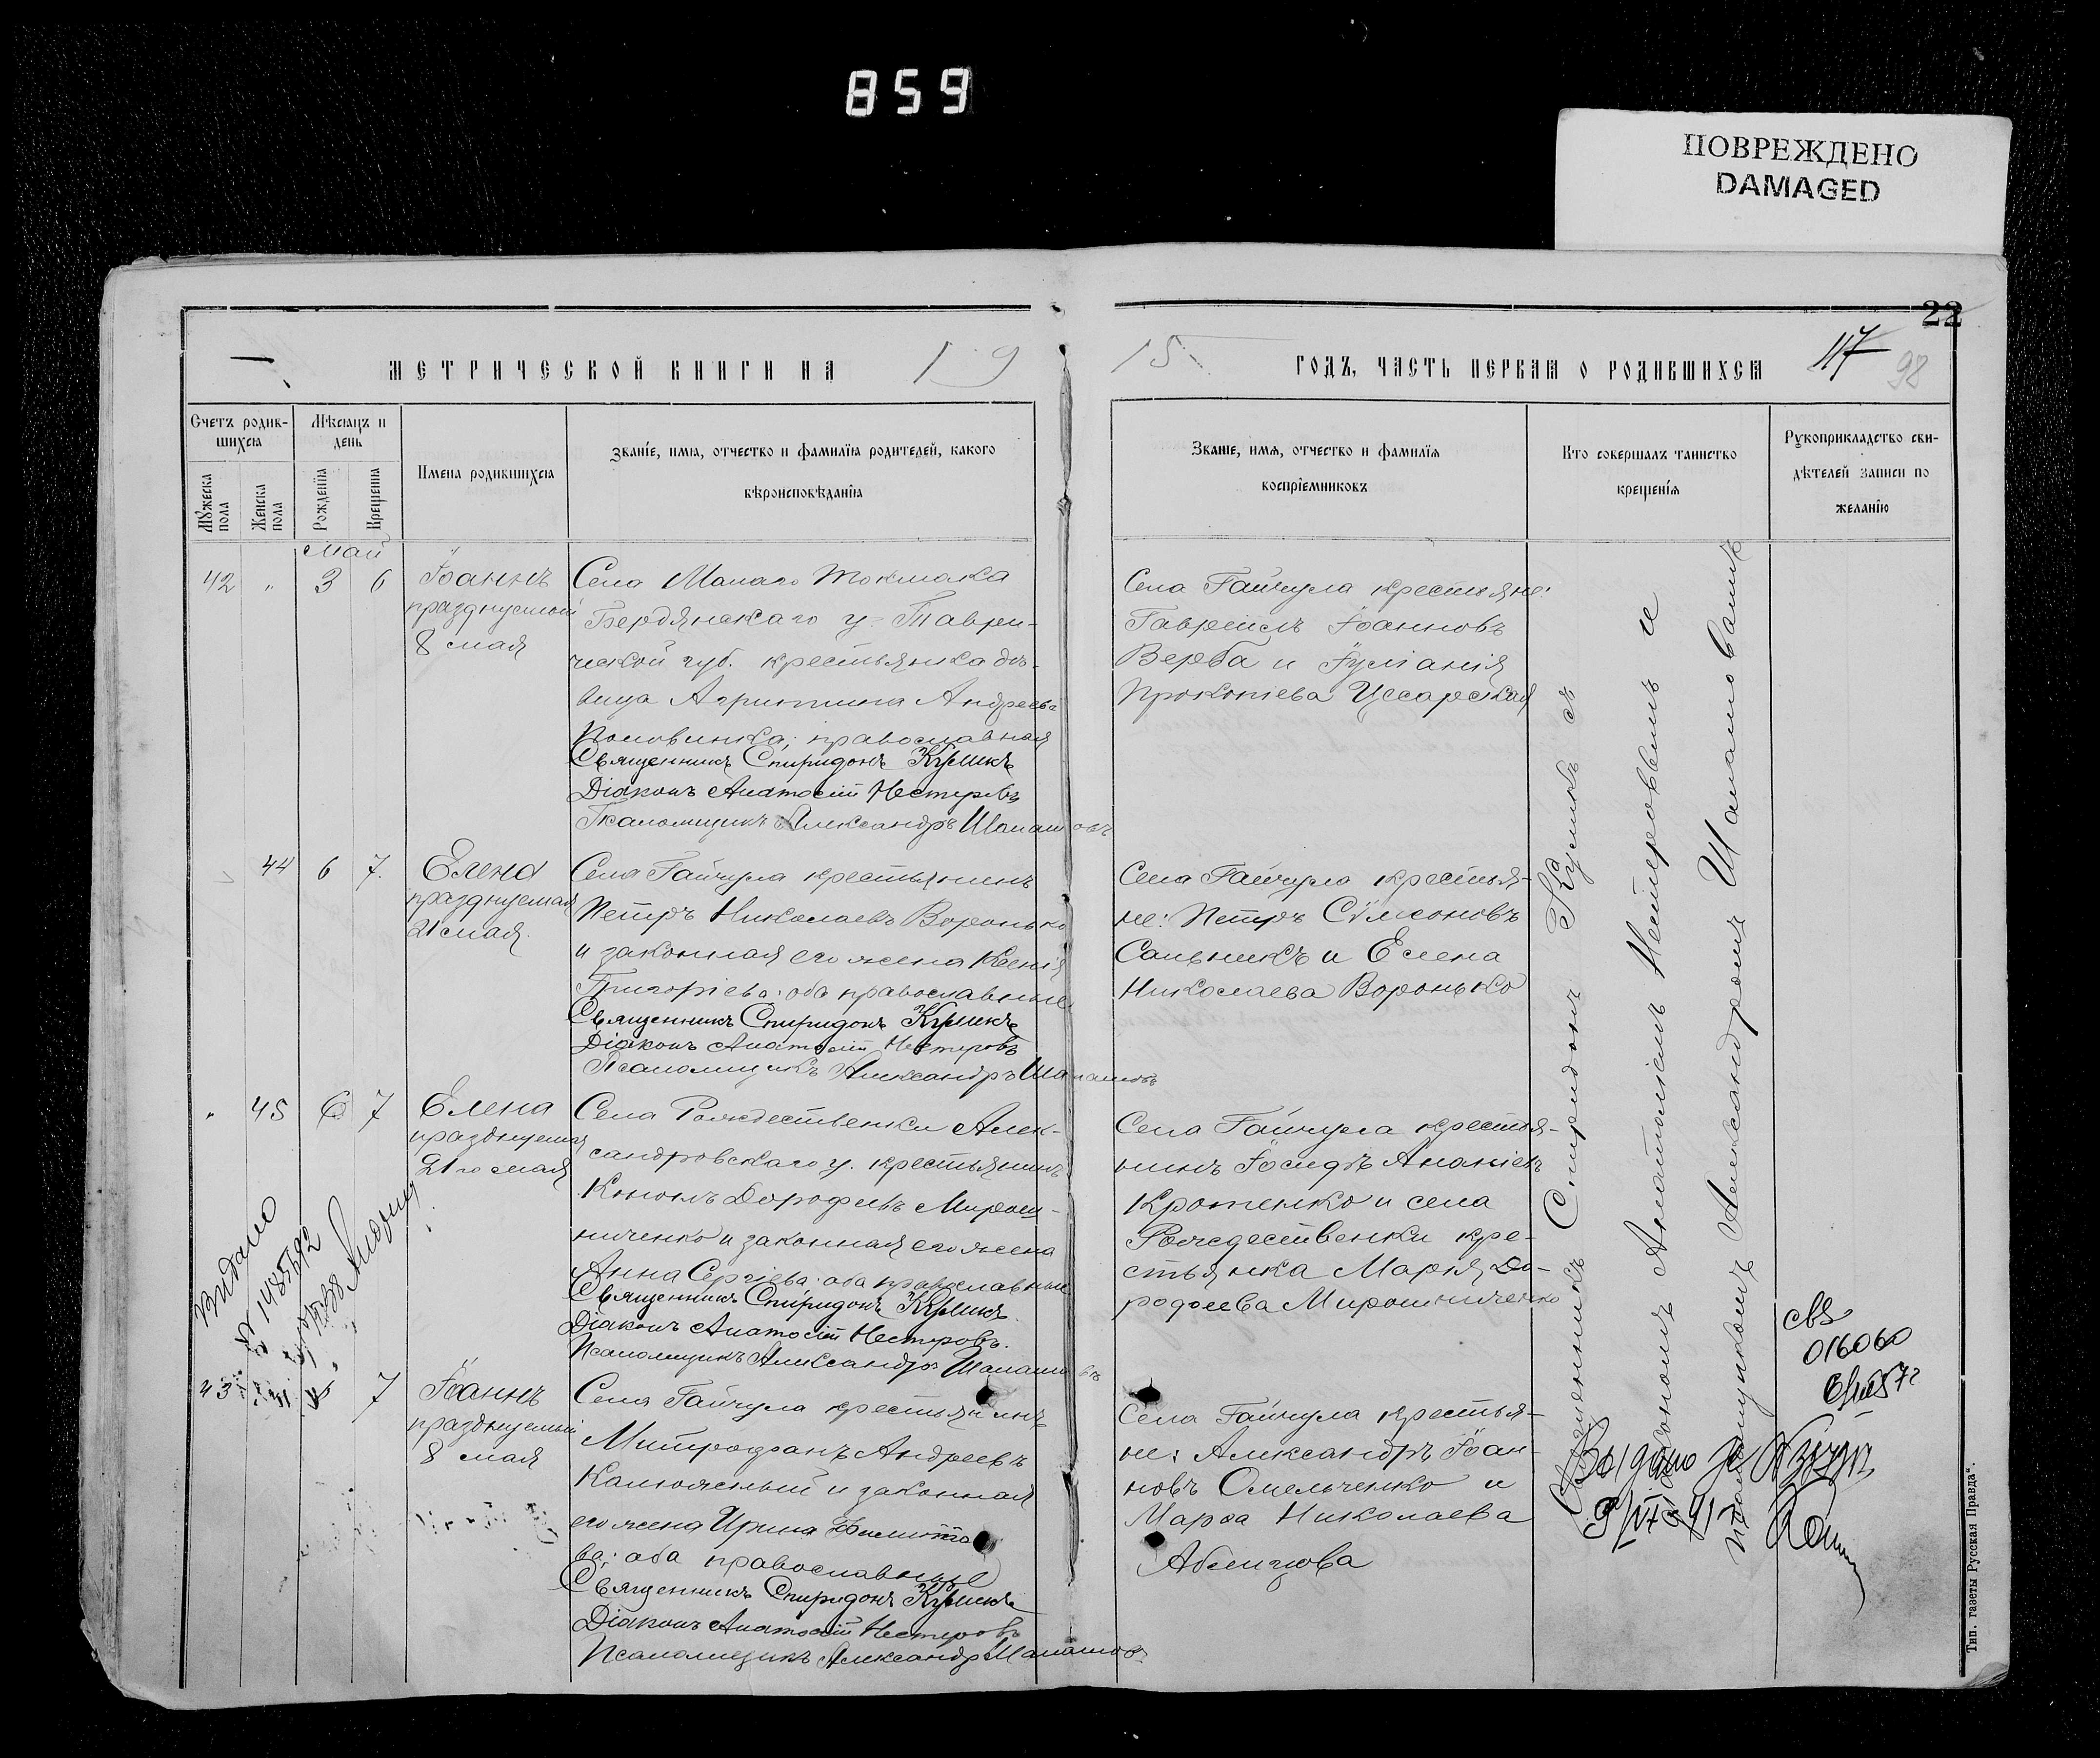 859
ПОВРЕЖДЕНО
DAMAGED
22
МЕТРИЧЕСКОЙ КНИГИ НА 19
15 ГОДЪ, ЧАСТЬ ПЕРВАЯ О РОДИВШИХСЯ
117
98
Счетъ родив-
шихся
Мужеска пола
Женска пола
Мѣсяцъ и
день
Рожденїя
Крещенїя
Имена родившихся
Званїе, имя, отчество и фамилїя родителей, какого
вѣроисповѣданїя
Званїе, имя, отчество и фамилїя
воспрїемниковъ
Кто совершалъ таинство
крещенїя
Рукоприкладство сви-
дѣтелей записи по
желанїю
май
42 " 3 6
Іоаннъ
празднуемый
8 мая
Села Малаго Токмака
Бердянскаго у. Таври-
ческой губ. крестьянка дѣ-
вица Агриппина Андреева
Половинка; православная
Священникъ Спиридонъ Куликъ
Діаконъ Анатолій Нестеровъ
Псаломщикъ Александръ Шапашовъ
Села Гайчула крестьяне:
Гавріилъ Іоанновъ
Верба и Іуліанія
Прокопіева Цесарская
44 6 7.
Елена
празднуемая
21 мая.
Села Гайчула крестьянинъ
Петръ Николаевъ Воронько
и законная его жена Ксенія
Григоріева: оба православные
Священникъ Спиридонъ Куликъ
Діаконъ Анатолій Нестеровъ
Псаломщикъ Александръ Шапашовъ
Села Гайчула крестья-
не: Петръ Сѵмеоновъ
Сальникъ и Елена
Николаева Воронько
" 45 6 7
Елена
празднуемая
21 го мая
Села Рождественки Алек-
сандровскаго у. крестьянинъ
Кононъ Дорофеевъ Мирош-
ниченко и законная его жена
Анна Сергіева: оба православные
Священникъ Спиридонъ Куликъ
Діаконъ Анатолій Нестеровъ.
Псаломщикъ Александръ Шапашовъ
Села Гайчула крестья-
нинъ Іосифъ Ананіевъ
Кротенко и села
Рождественки кре-
стьянка Марія До-
рофеева Мирошниченко
Видано
43 7
Іоаннъ
празднуемый
8 мая
Села Гайчула крестьянинъ
Митрофанъ Андреевъ
Калюжный и законная
его жена Ирина Филиппо
ва: оба православные
Священникъ Спиридонъ Куликъ
Діаконъ Анатолій Нестеровъ
Псаломщикъ Александръ Шапашовъ
Села Гайчула крестья-
не: Александръ Іоан-
новъ Омельченко и
Марѳа Николаева
Священникъ Спиридонъ Куликъ съ
діакономъ Анатоліемъ Нестеровымъ и
псаломщикомъ Александромъ Шапашовымъ
свЯ
016060
Выдано
Тип. газеты Русская Правда".